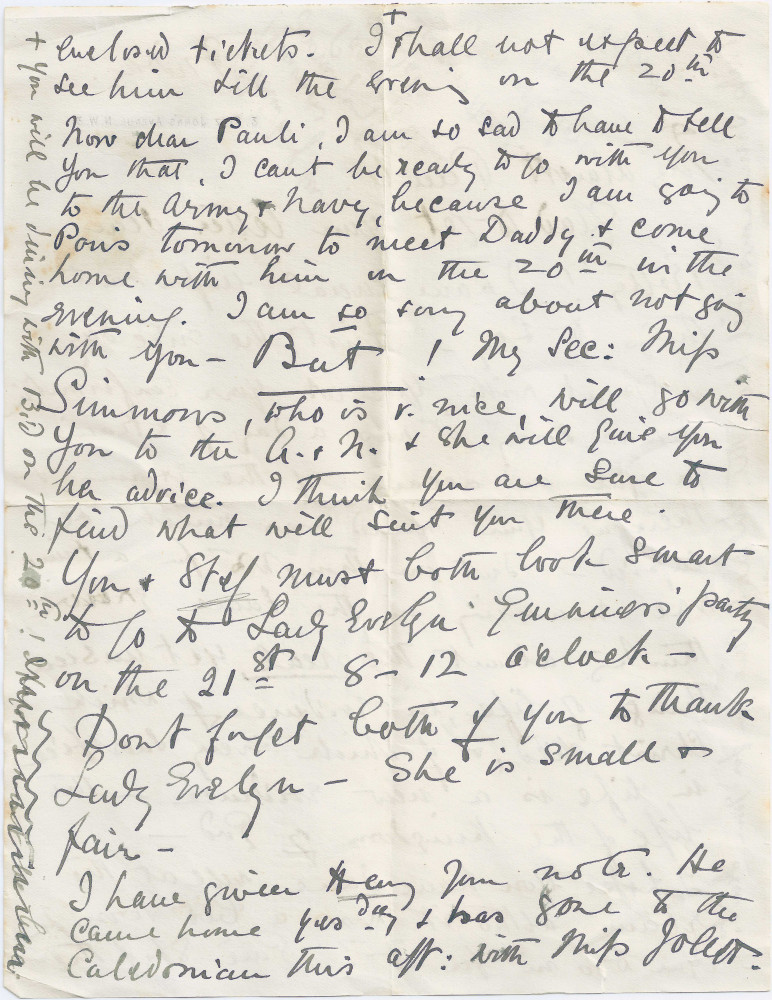 +
enclosed tickets. I shall not expect to
see him till the evening on the 20th
Now dear Pauli, I am so sad to have to tell
you that, I cant be ready to go with you
to the Army & Navy, because I am going to
Paris tomorrow to meet Daddy & come
home with him on the 20th in the
evening. I am so sorry about not going
with you – But ! My Sec: Miss
Simmons, who is v. nice, will go with
you to the A. & N. & she will give you
her advice. I think you are sure to
find what will suit you there.
You & Stef must both look smart
to go to Lady Evelyn party
on the 21st 8 – 12 o'clock –
Dont forget both of you to thank
Lady Evelyn – She is small &
fair –
I have given Henry your note. He
came home yesday & has gone to the
Caledonian this aft: with Miss
+ You will be dining with Bid on the 20th!